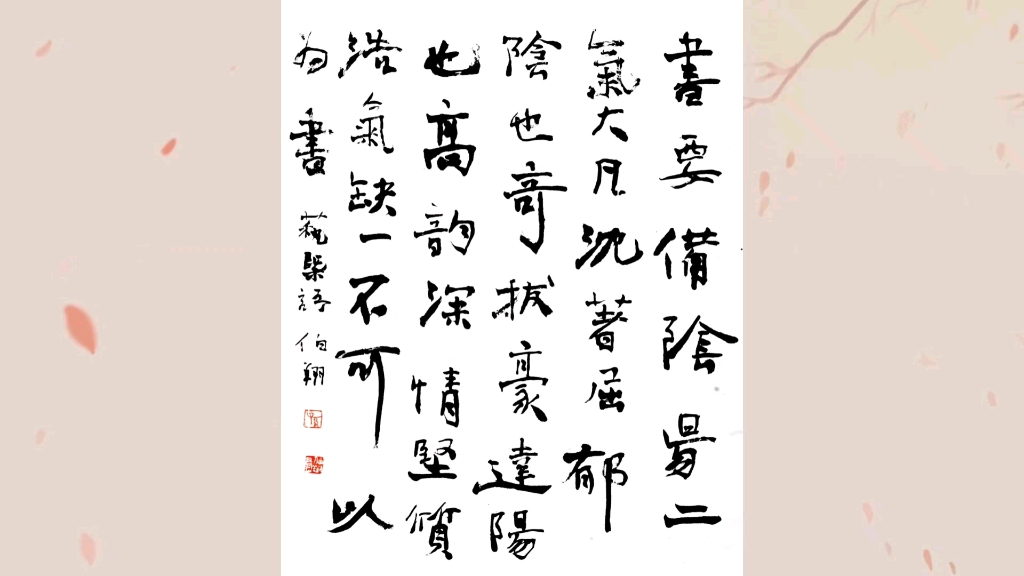 書要備陰昜二
氣大凡沈著屈郁
陰也奇拔豪達陽
也高韵深情堅質
浩氣缺一不可以
为書 藝槩語 伯翔